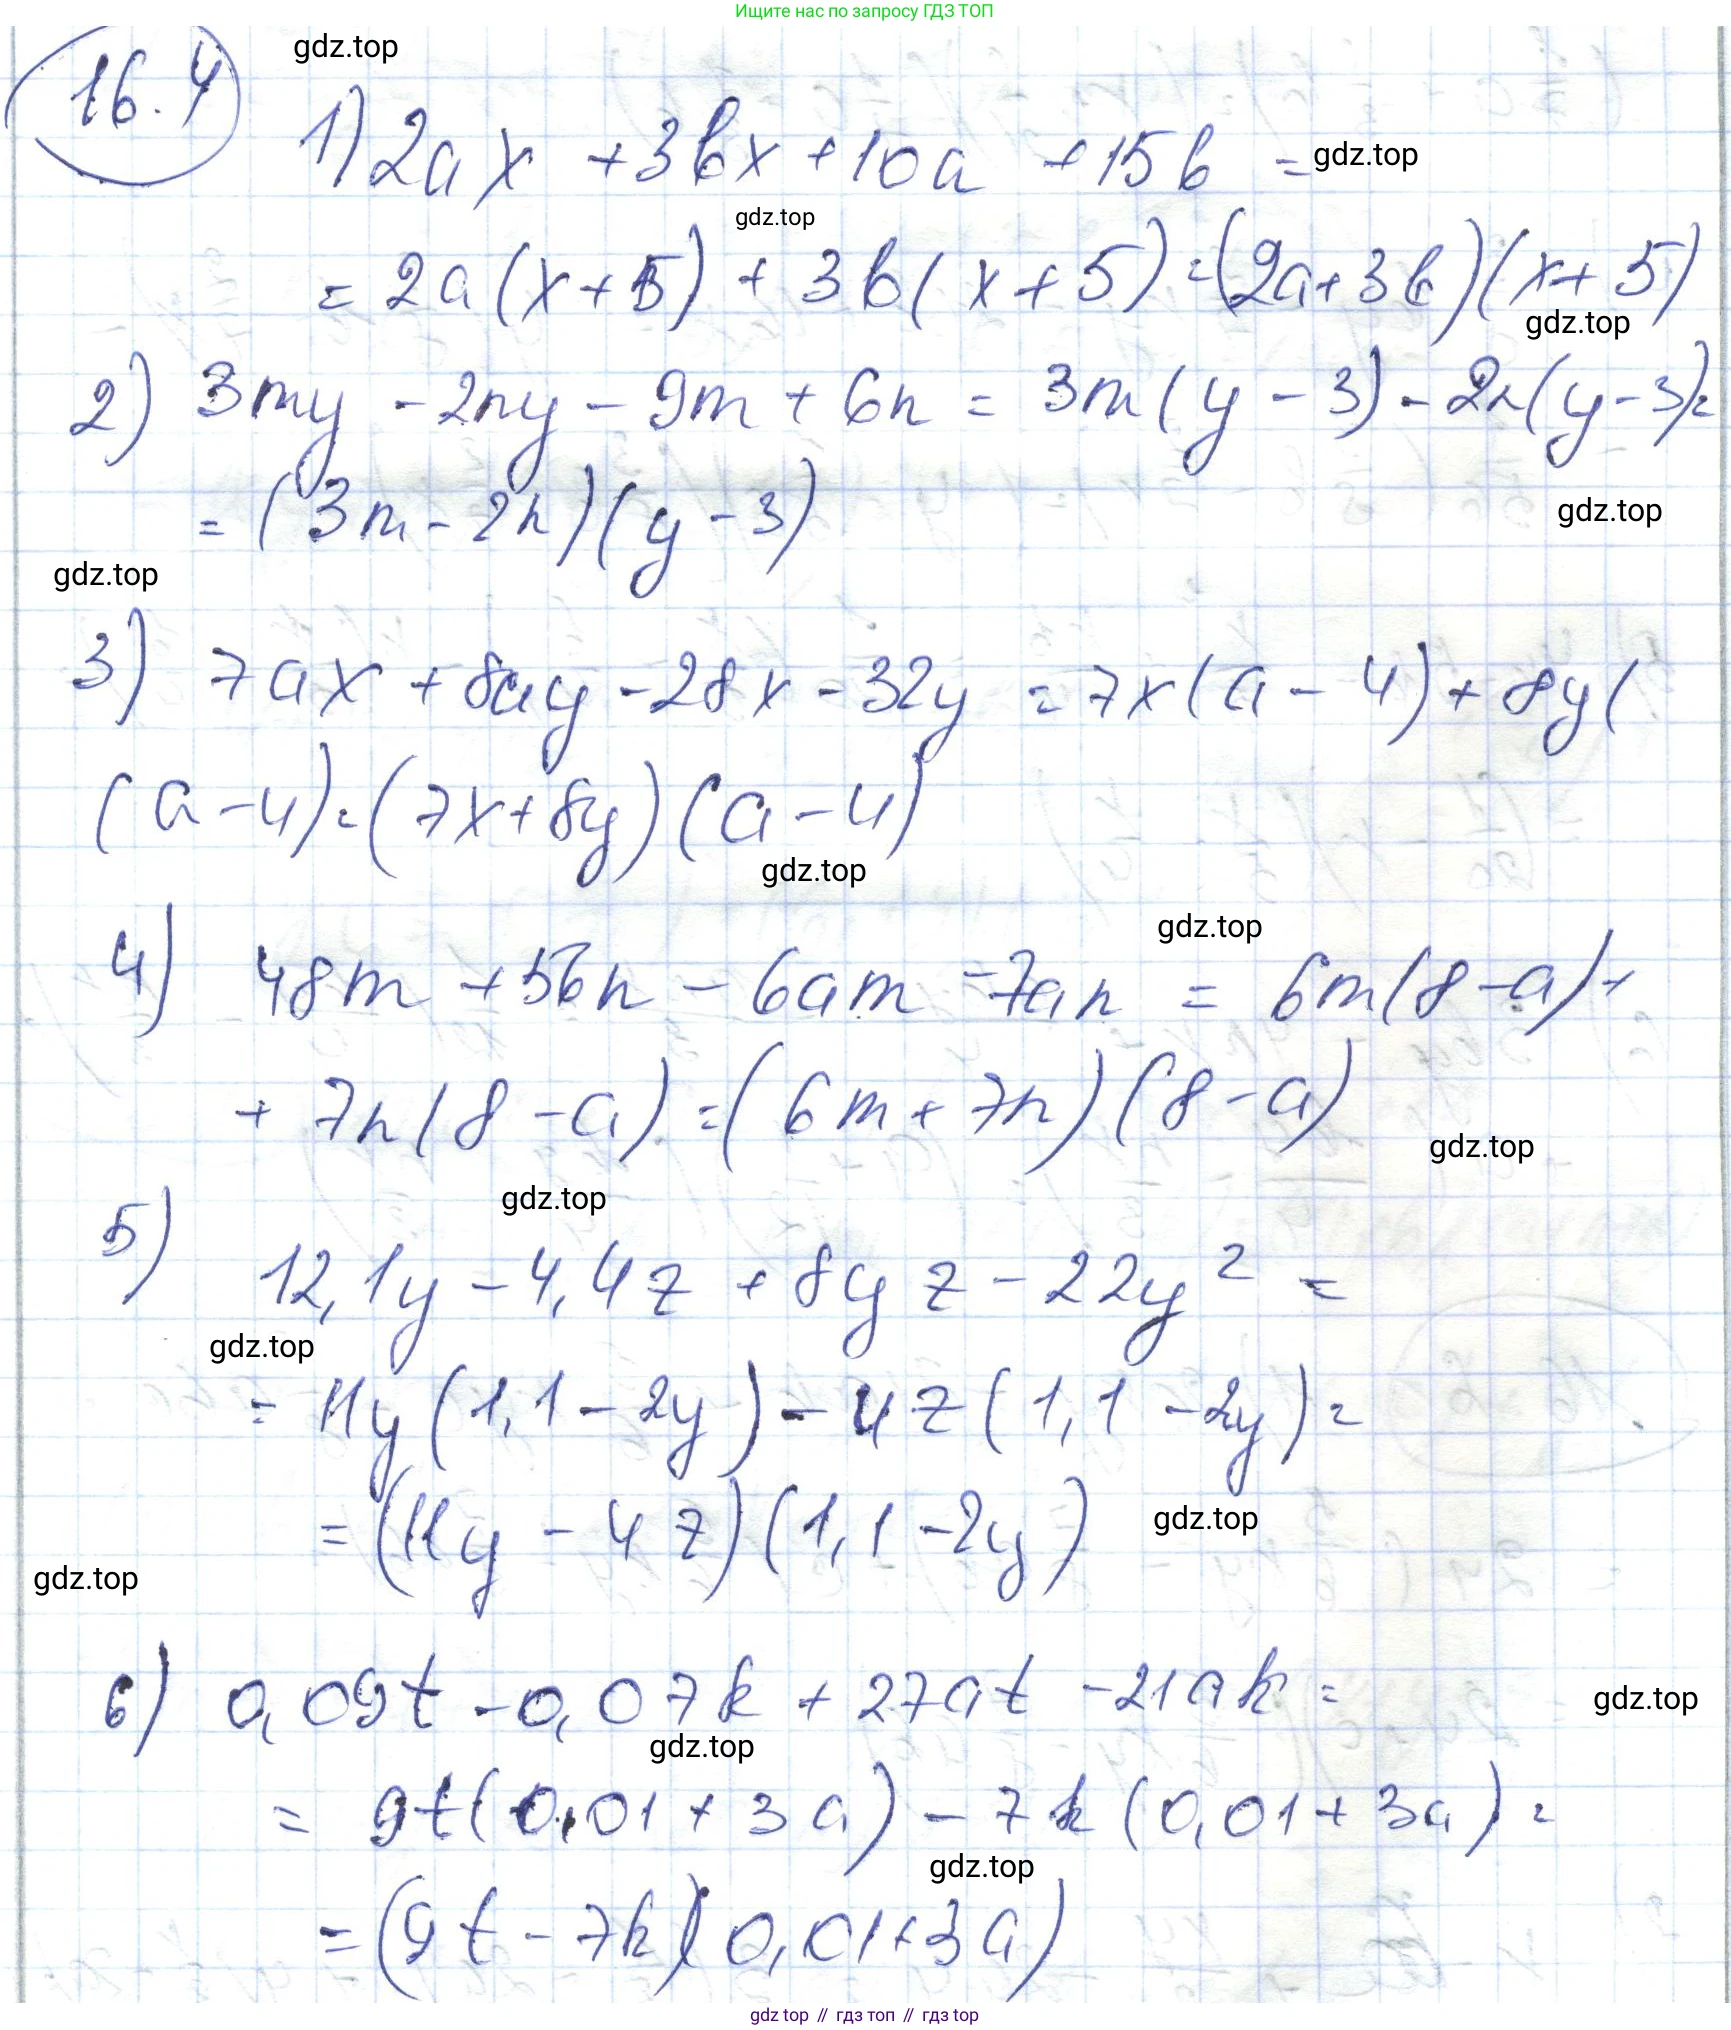 Ищите нас по запросу ГДЗ ТОП
16.4
gdz.top
1) 2ax + 3bx + 10a + 15b =
gdz.top
gdz.top
= 2a(x+5) + 3b(x+5) = (2a+3b)(x+5)
gdz.top
2) 3my - 2ny - 9m + 6n = 3m(y-3) - 2n(y-3) =
= (3m-2n)(y-3)
gdz.top
gdz.top
3) 7ax + 8ay - 28x - 32y = 7x(a-4) + 8y(
(a-4) = (7x+8y)(a-4)
gdz.top
gdz.top
4) 48m + 56n - 6am - 7an = 6m(8-a) +
+ 7n(8-a) = (6m+7n)(8-a)
gdz.top
gdz.top
5) 12,1y - 4,4z + 8yz - 22y² =
gdz.top
= 11y(1,1-2y) - 4z(1,1-2y) =
= (11y-4z)(1,1-2y)
gdz.top
gdz.top
6) 0,09t - 0,07k + 27at - 21ak =
gdz.top
gdz.top
= 9t(0,01+3a) - 7k(0,01+3a) =
gdz.top
= (9t-7k)(0,01+3a)
gdz top // гдз топ // гдз top